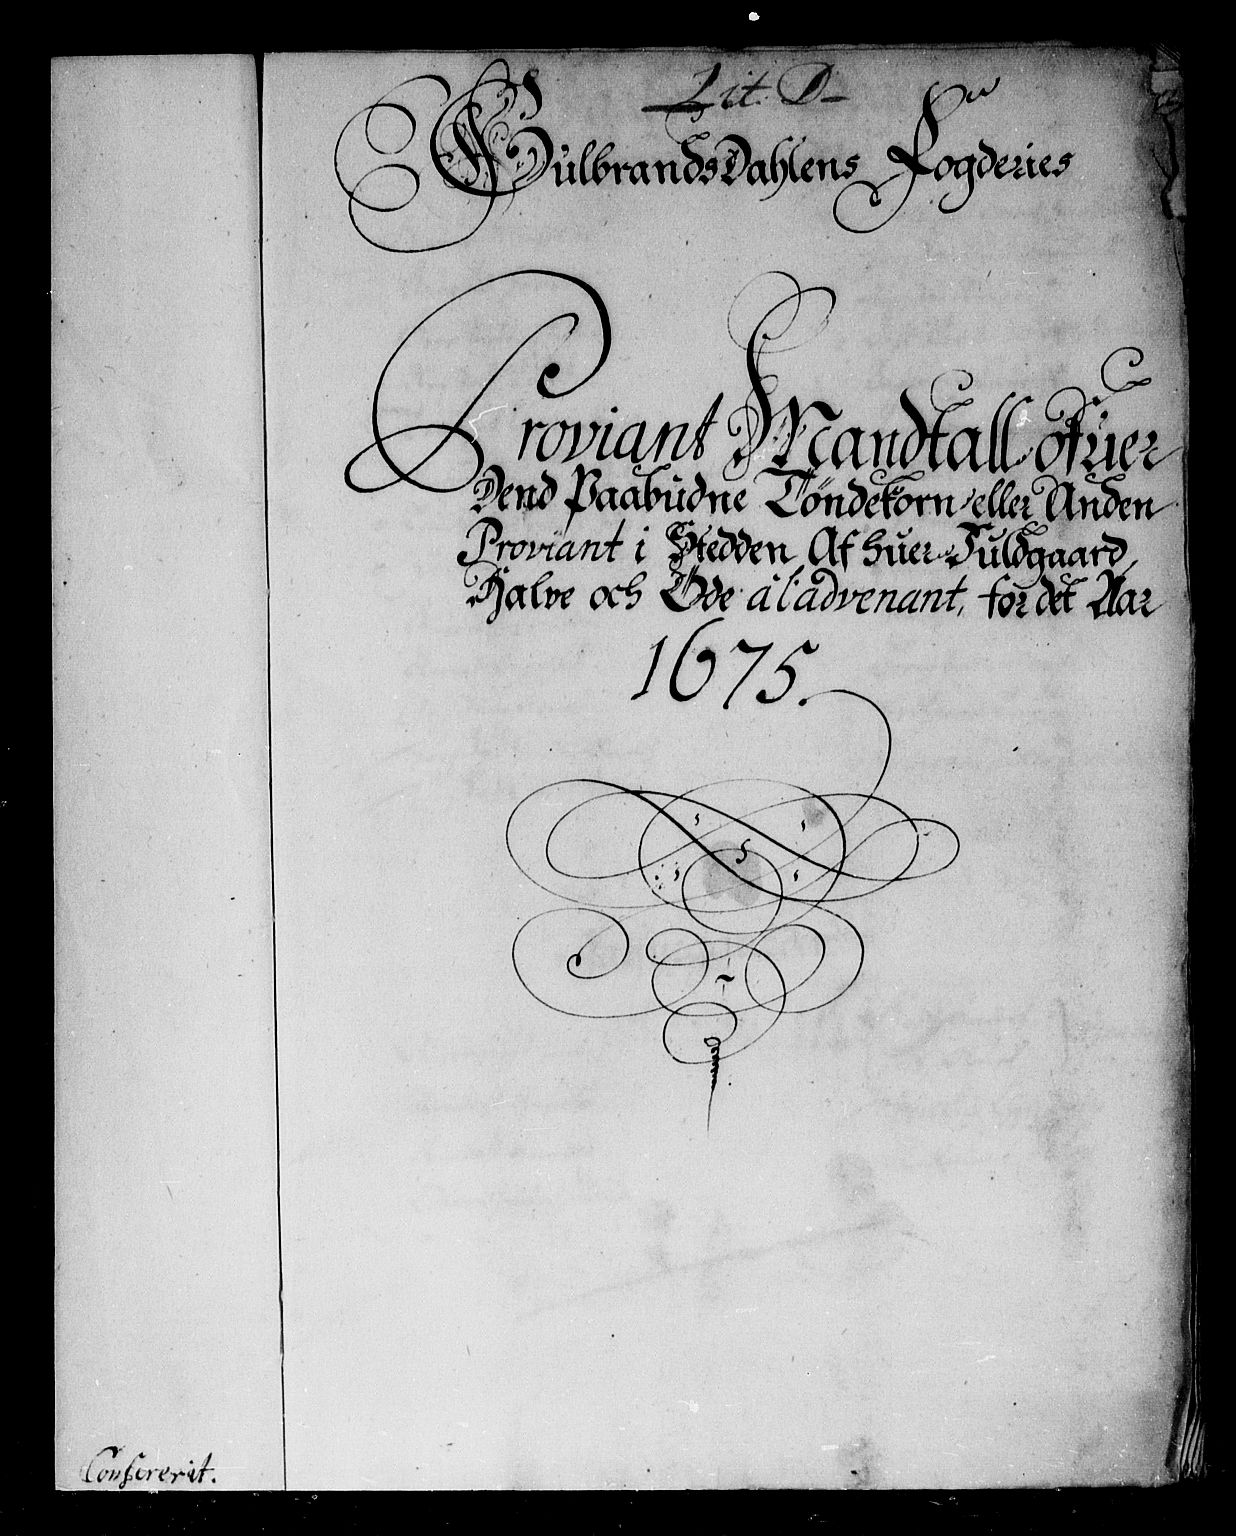 Lit. D
GulbrandsDahlens Fogderies
Proviant Mandtall ofuer
Dend Paabudne Töndekorn eller Anden
Proviant i Stedden Af huer Fuldgaard
Halve och Öde á l'advenant, for det Aar
1675.